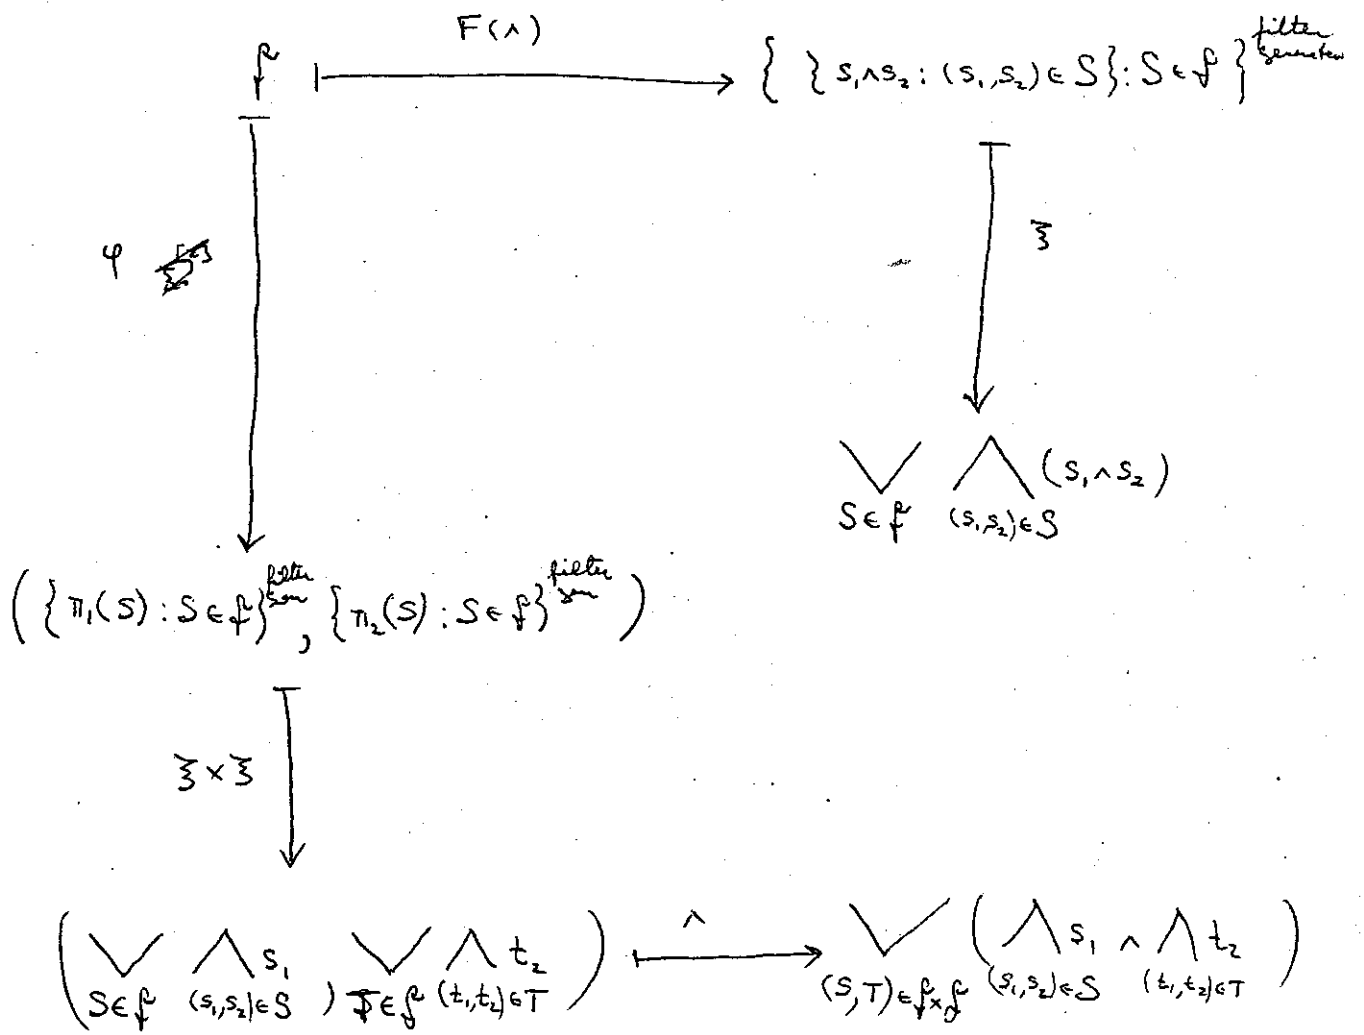 F(∧)
f ⟼ { { s₁∧s₂ : (s₁,s₂) ∈ S } : S ∈ f }^filter generated
φ
ξ
⋁_{S∈f} ⋀_{(s₁,s₂)∈S} (s₁∧s₂)
( { π₁(S) : S ∈ f }^filter gen , { π₂(S) : S ∈ f }^filter gen )
ξ×ξ
( ⋁_{S∈f} ⋀_{(s₁,s₂)∈S} s₁ , ⋁_{T∈f} ⋀_{(t₁,t₂)∈T} t₂ ) ⟼^∧ ⋁_{(S,T)∈f×f} ( ⋀_{(s₁,s₂)∈S} s₁ ∧ ⋀_{(t₁,t₂)∈T} t₂ )